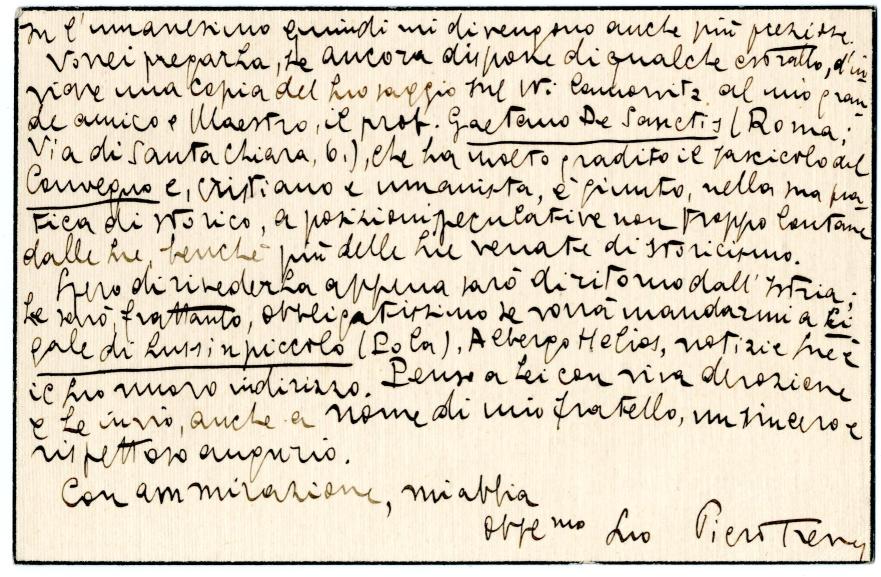 m l'umanesimo quindi mi divengono anche più preziose.
Vorrei pregarLa, se ancora dispone di qualche estratto, d'in
viare una copia del Suo saggio sul W. al mio gran
de amico e Maestro, il prof. Gaetano De Sanctis (Roma;
Via di Santa Chiara, 61), che ha molto gradito il fascicolo del
Convegno e, cristiano e umanista, è giunto, nella sua pra
tica di storico, a posizioni speculative non troppo lontane
dalle Sue, benchè più delle Sue venate di storicismo.
Spero di rivederLa appena sarò di ritorno dall'Istria;
Le sarò, frattanto, obbligatissimo se vorrà mandarmi a Ci
gale di Lussinpiccolo (Pola), Albergo Helios, notizie Sue e
il Suo nuovo indirizzo. Penso a Lei con viva devozione
e Le invio, anche a nome di mio fratello, un sincero e
rispettoso augurio.
Con ammirazione, mi abbia
obbl.mo Suo Piero Treves